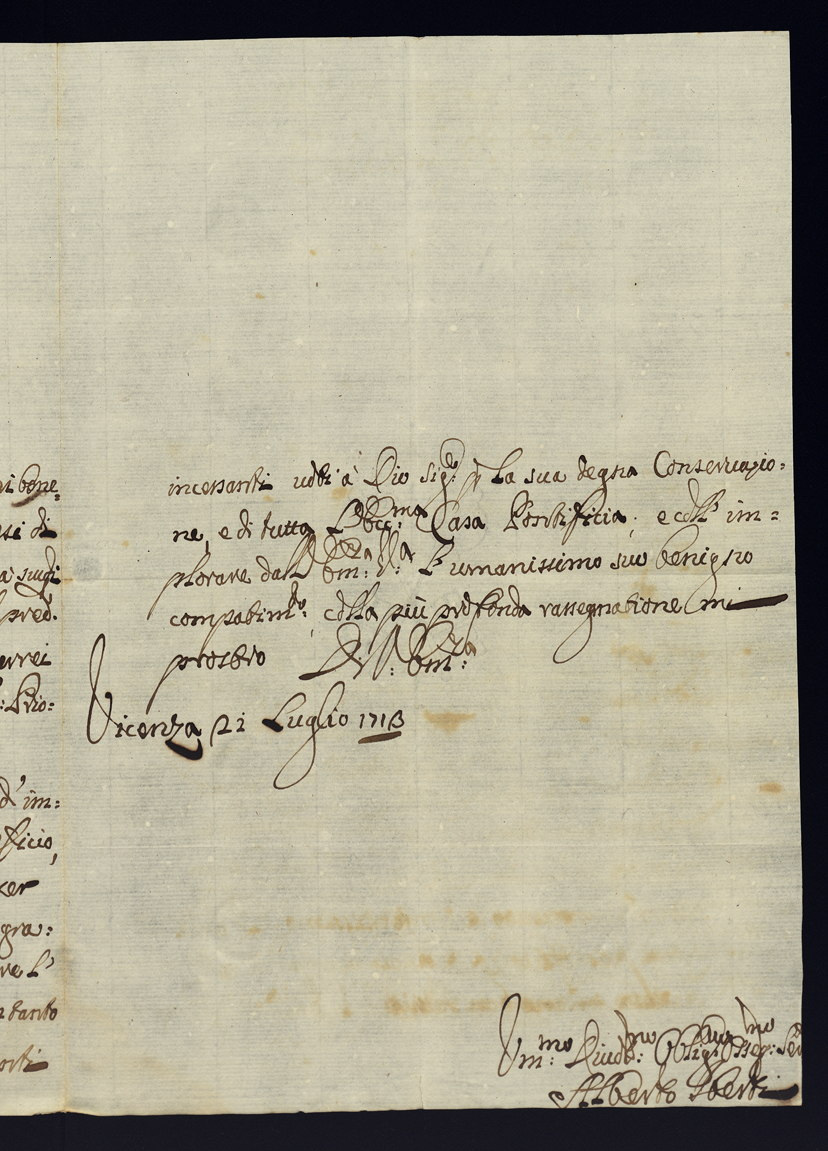 ri bene-
si di
à suoi
pred.
errei
: Prio:
d'im:
ficio,
cer
gra:
re l'
tanto
orti
incessanti uoti à Dio Sig.re p la sua degna Conseruazio:
ne, e di tutta l'Ecc.ma Casa Pontificia; e coll' im=
plorare dall
l'umanissimo suo benigno
compatim.to, colla più profonda rassegnatione mi
prostro Di V. Bm.za
Vicenza 21 Luglio 1713
Vm.mo Diuot.mo Oblig.mo Osseq.mo Ser
Alberto Sberti